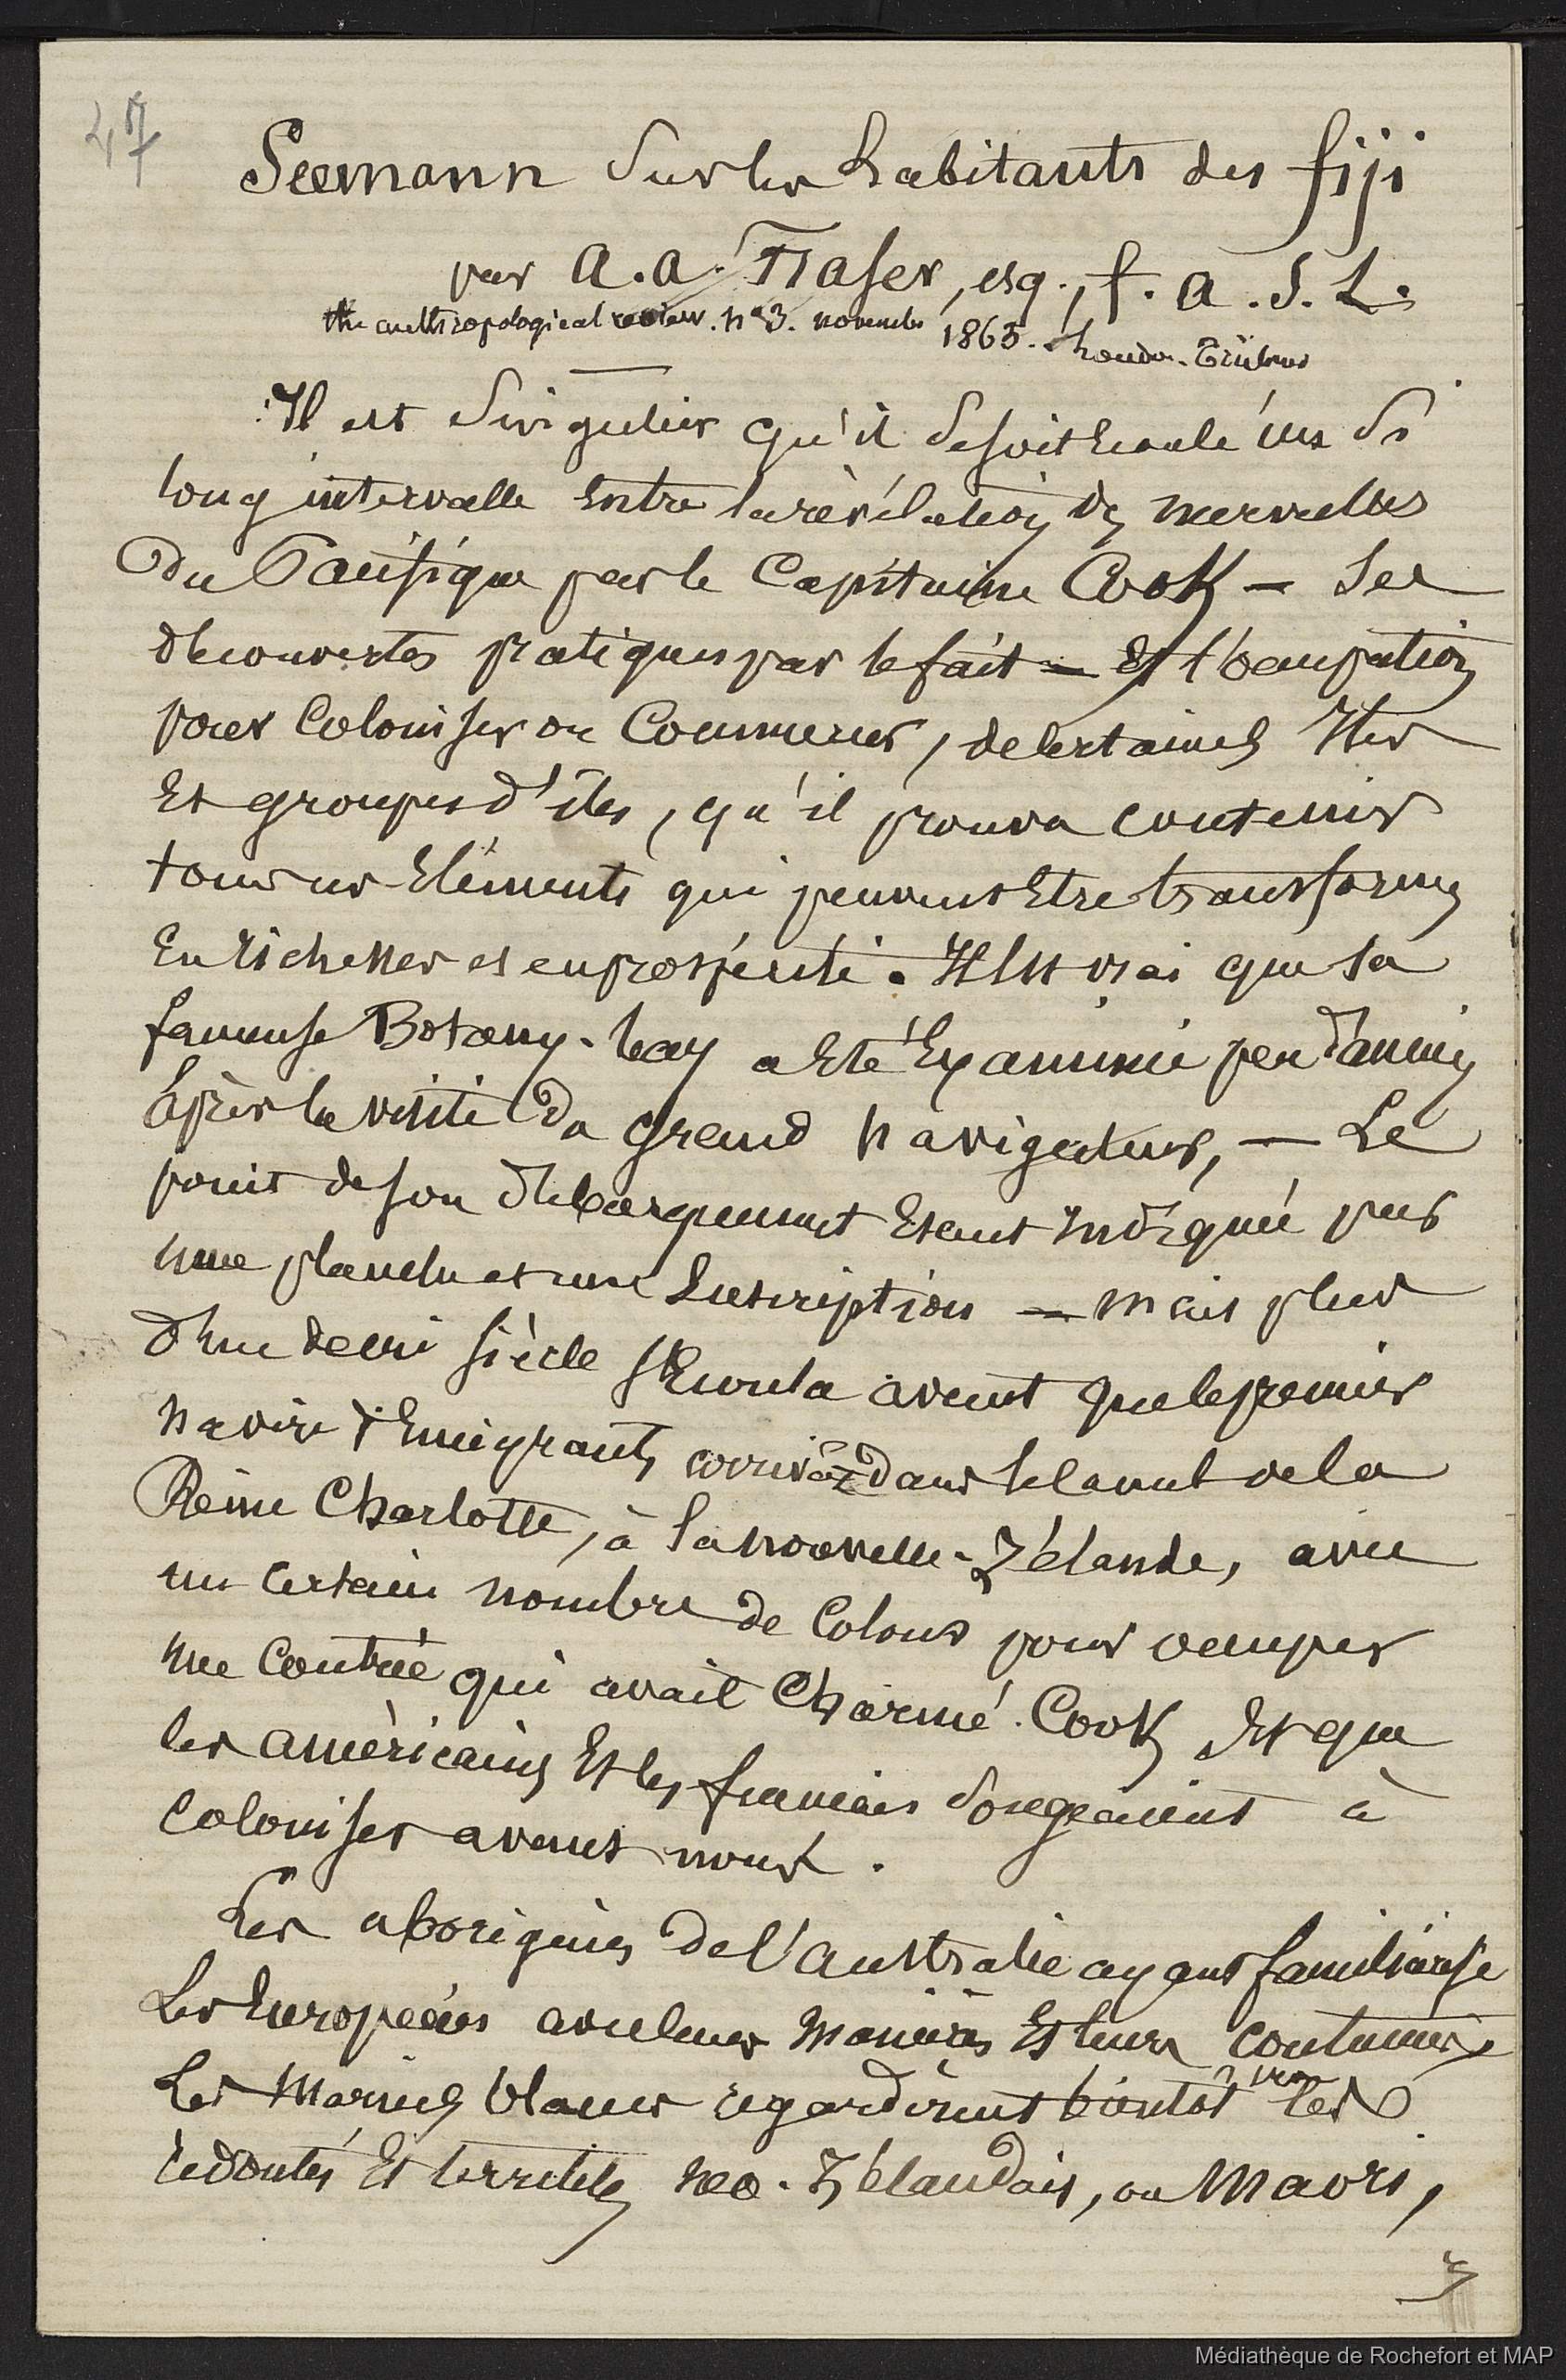 47
Seemann sur les habitants des fiji
par A. A. Fraser, esq., f. A. S. L.
the anthropological review. n° 3. novembre 1863. London. Trübner
Il est singulier qu'il se soit écoulé un si
long intervalle Entre la révélation des merveilles
du Pacifique par le Capitaine Cook — Ses
découvertes pratiques par le fait — Et l'occupation
pour Coloniser ou Commercer, de certaines Iles
Et groupes d'îles, qu'il prouva contenir
tous ces Eléments qui peuvent Etre transformés
En richesses et en prospérité. Il Est vrai que sa
fameuse Botany-bay a Eté Examinée peu d'années
après la visite du grand navigateur, — Le
point de son débarquement Etant Indiqué par
une planche et une Inscription — mais plus
d'un demi siècle s'Ecoula avant que le premier
navire d'Emigrants arriva dans le canal de la
Reine Charlotte, à la nouvelle-Zélande, avec
un certain nombre de Colons pour occuper
une Contrée qui avait Charmé Cook Et que
les américains Et les francais songeaient à
Coloniser avant nous.
Les aborigènes de l'australie ayant familiarisé
Les Européens avec leurs manières Et leurs coutumes
Les Marins blancs regardèrent bientôt les
redoutés Et terribles neo-Zélandais, ou Maori,
Médiathèque de Rochefort et MAP